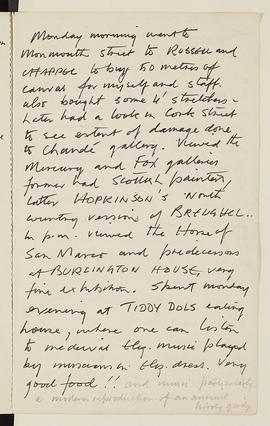 Monday morning went to
Monmouth street to RUSSELL and
CHAPPEL to buy 50 metres of
canvas for myself and staff.
also bought some 4' stretchers -
Later had a look in Cork Street
to see extent of damage done
to gallery. Viewed the
Mercury and Fox galleries
former had Scottish painters,
latter HOPKINSON'S North
country version of BREUGHEL..
In p.m. viewed the Horse of
San Marco and predecessors
at BURLINGTON HOUSE, very
fine exhibition. Spent monday
evening at TIDDY DOLS eating
house, where one can listen
to medieval Eng. music played
by musicians in Eng. dress. Very
good food!! and music particularly
a modern reproduction of an ancient
hurdy gurdy